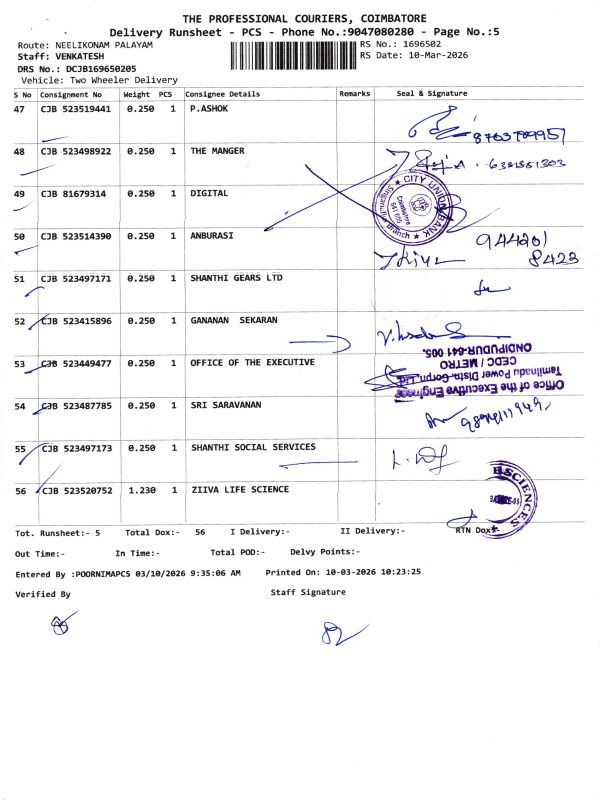 THE PROFESSIONAL COURIERS, COIMBATORE
Delivery Runsheet - PCS - Phone No.:9047080280 - Page No.:5
Route: NEELIKONAM PALAYAM
RS No.: 1696502
Staff: VENKATESH
RS Date: 10-Mar-2026
DRS No.: DCJB169650205
Vehicle: Two Wheeler Delivery
S No Consignment No Weight PCS Consignee Details Remarks Seal & Signature
47 CJB 523519441 0.250 1 P.ASHOK
48 CJB 523498922 0.250 1 THE MANGER
49 CJB 81679314 0.250 1 DIGITAL
CITY UNION BANK
Coimbatore
641 005
Branch
50 CJB 523514390 0.250 1 ANBURASI
944201
8423
51 CJB 523497171 0.250 1 SHANTHI GEARS LTD
52 CJB 523415896 0.250 1 GANANAN SEKARAN
53 CJB 523449477 0.250 1 OFFICE OF THE EXECUTIVE
Office of the Executive Engineer
Tamilnadu Power Distn.Gorpn.Ltd
CEDC / METRO
ONDIPUDUR-641 005.
54 CJB 523487785 0.250 1 SRI SARAVANAN
55 CJB 523497173 0.250 1 SHANTHI SOCIAL SERVICES
56 CJB 523520752 1.230 1 ZIIVA LIFE SCIENCE
SCIENCES
Tot. Runsheet:- 5 Total Dox:- 56 I Delivery:- II Delivery:- RTN Dox:-
Out Time:- In Time:- Total POD:- Delvy Points:-
Entered By :POORNIMAPCS 03/10/2026 9:35:06 AM Printed On: 10-03-2026 10:23:25
Verified By Staff Signature